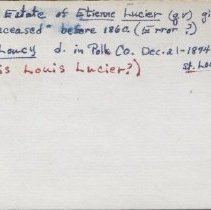 Estate of Etienne Lucier (q.v.) gi
ceased before 1860 (Error?)
Loucy d. in Polk Co. Dec. 21-1894
is Louis Lucier?) St. Lou